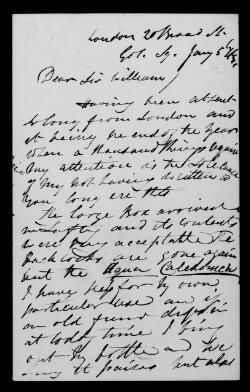 London 20 Broad St.
Gol. Sq. Jany 5
Dear Sir William
Having been absent
so long from London and
it being the end of the Year
when a thousand things
my attention is the sole cause
of my not having written to
You long ere this
The large Box arrived
and its contents
were very acceptable the
are gone again
but the Aqua Caledonich
I have kept for my own
particular use and if
an old friend drops in
at Toddy time I bring
out my bottle and we
sing its praises but alas